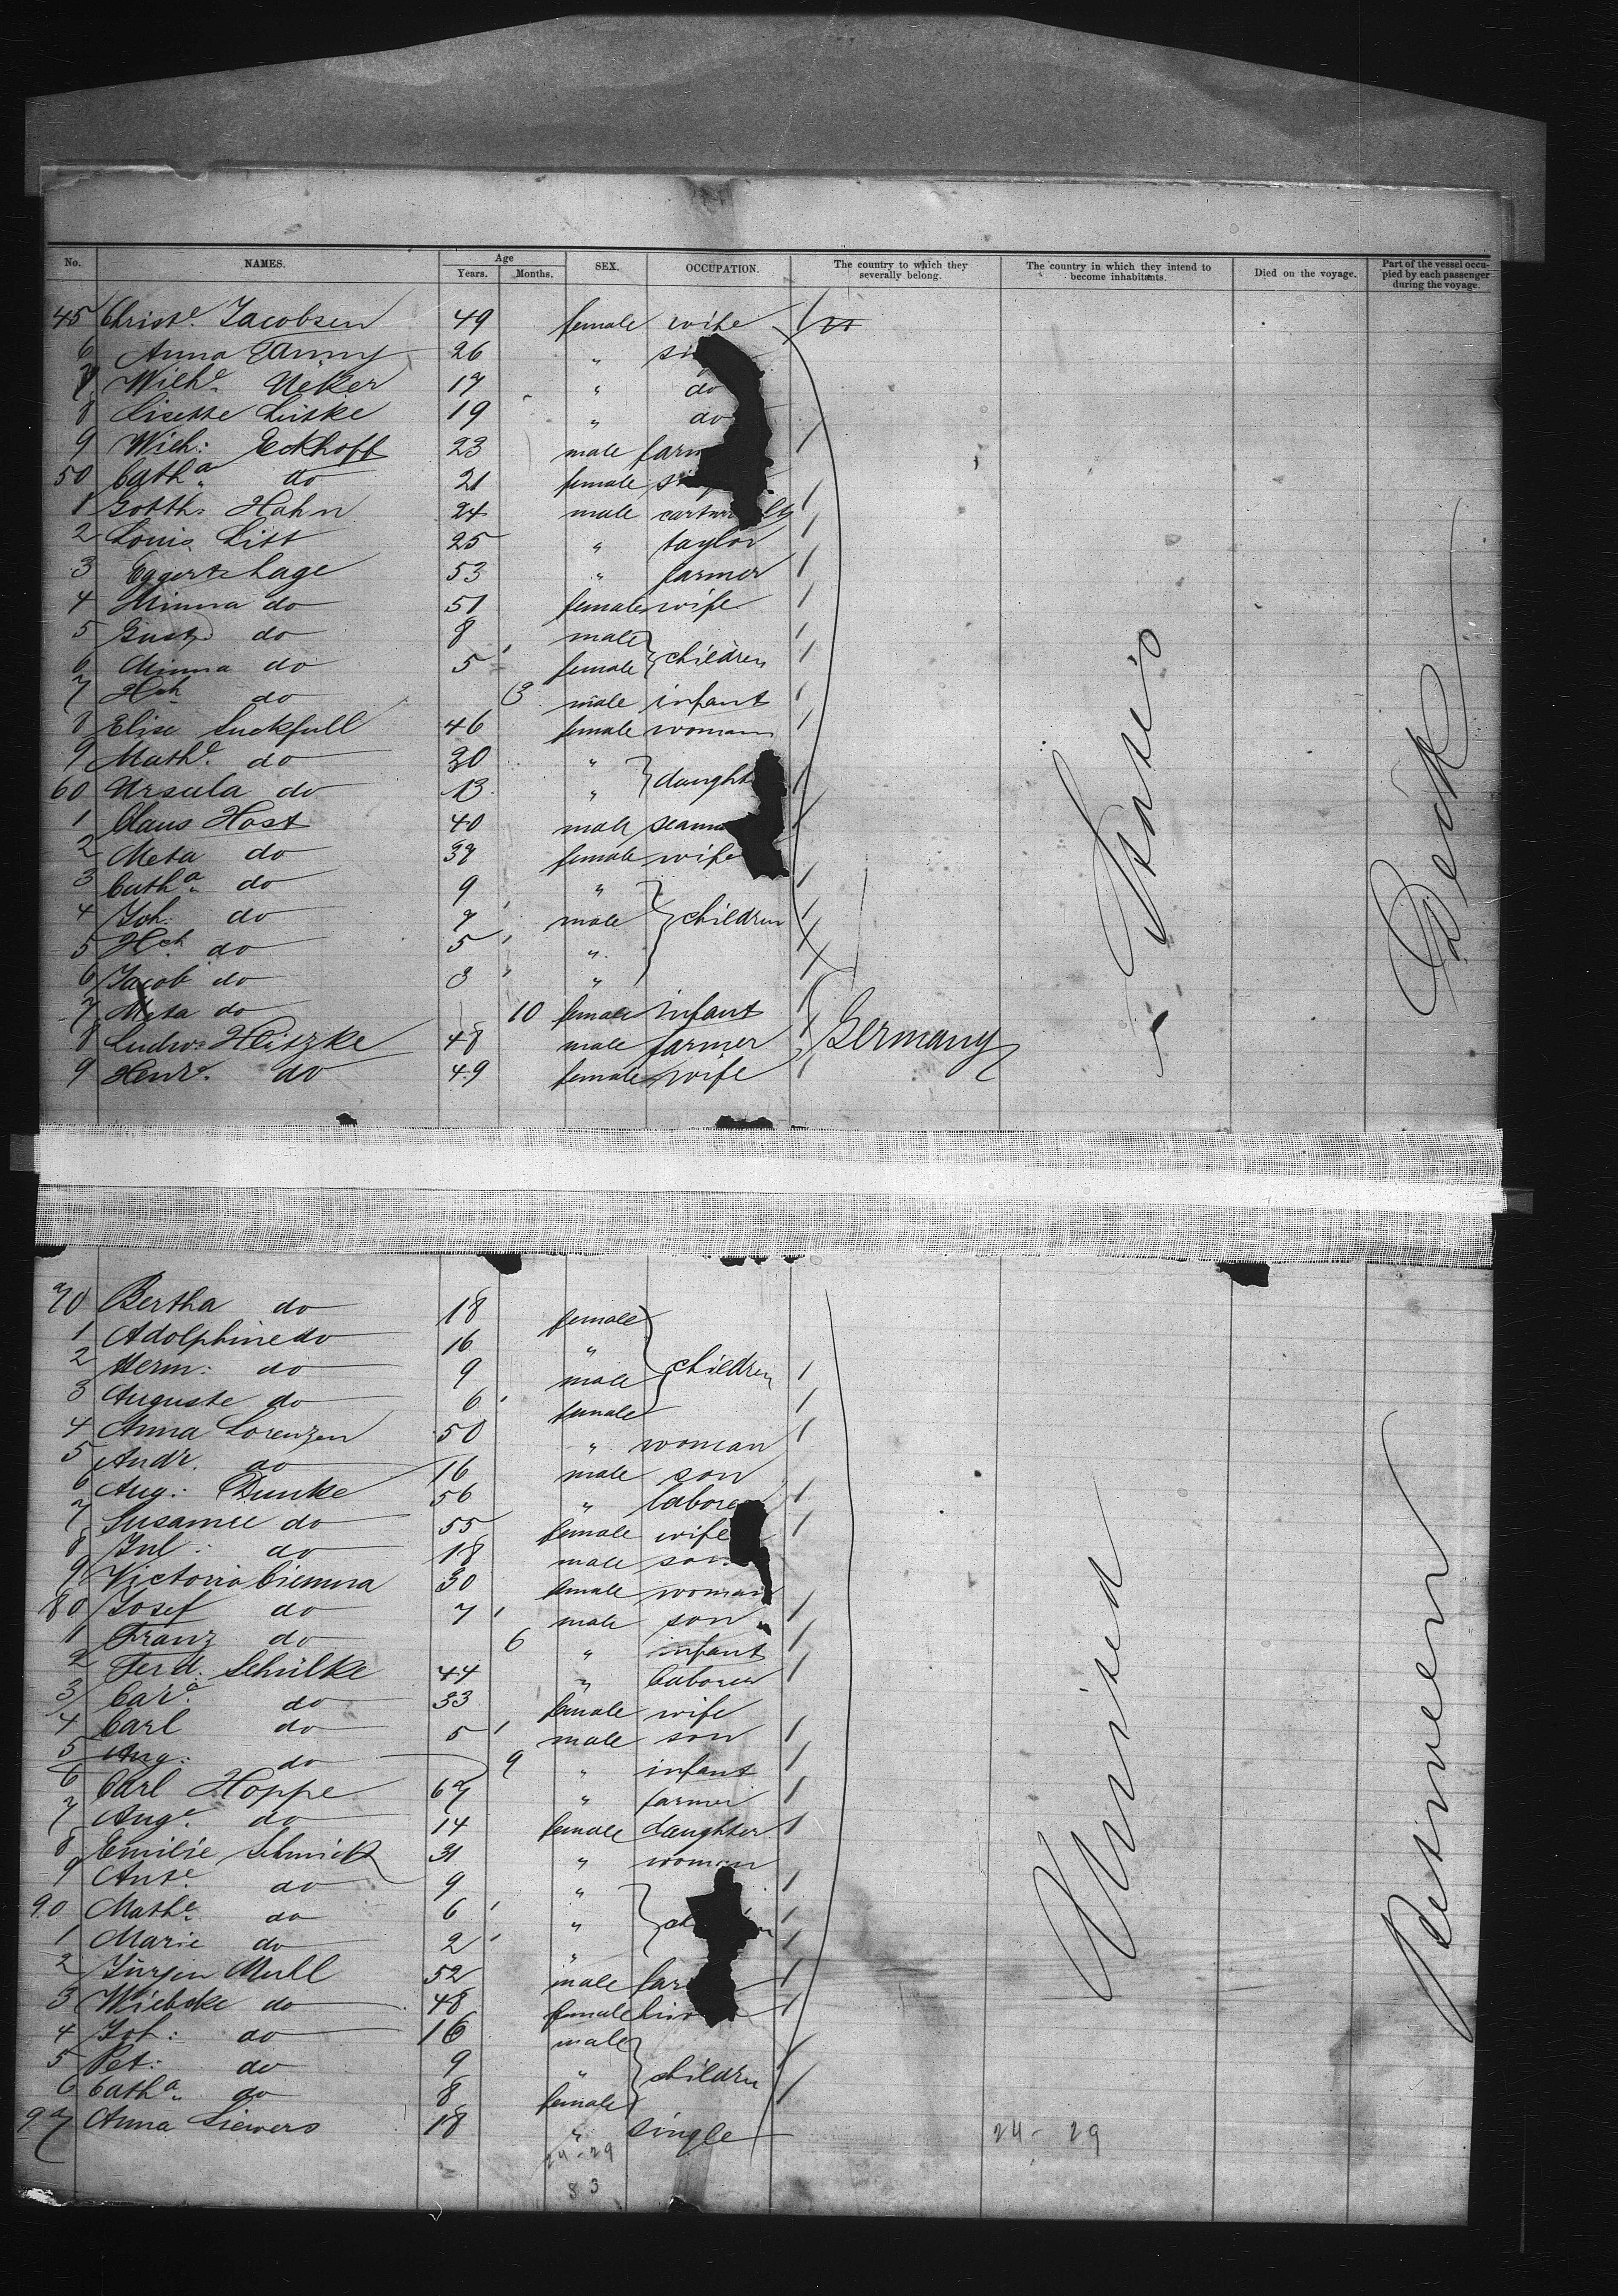 No. NAMES. Age Years. Months. SEX. OCCUPATION. The country to which they severally belong. The country in which they intend to become inhabitants. Died on the voyage. Part of the vessel occupied by each passenger during the voyage.
45 Christe. Jacobsen 49 female wife
6 Anna 26 "
7 Wilhe. Ueker 17 " do
8 Lisette Liske 19 " do
9 Wilh: Eckhoff 23 male farm
50 Catha. do 21 female
1 Gotth: Hahn 24 male
2 Louis Litt 25 " taylor
3 Eggert Lage 53 " farmer
4 Minna do 51 female wife
5 Gust. do 8 male
6 Minna do 5 female children
7 Hch do 3 male infant
8 Elise Luckfull 46 female woman
9 Mathe. do 20 "
60 Ursula do 13 " daught
1 Claus Host 40 male seam
2 Meta do 37 female wife
3 Catha. do 9 "
4 Joh: do 7 male children
5 Hch. do 5 "
6 Jacob do 3 "
7 Meta do 10 female infant
8 Ludw: Hitzke 48 male farmer Germany
9 Henre. do 49 female wife
70 Bertha do 18 female
1 Adolphine do 16 "
2 Herm: do 9 male children
3 Auguste do 6 female
4 Anna Lorenzen 50 " woman
5 Andr. do 16 male son
6 Aug: Dunke 56 " laborer
7 Susanne do 55 female wife
8 Jul: do 18 male son
9 Victoria Ciemna 30 female woman
80 Josef do 7 male son
1 Franz do 6 " infant
2 Ferd: Schülke 44 " laborer
3 Cara. do 33 female wife
4 Carl do 5 male son
5 Aug: do 9 " infant
6 Carl Hoppe 67 " farmer
7 Auge. do 14 female daughter
8 Emilie Schmidt 31 " woman
9 Ante. do 9 "
90 Mathe. do 6 "
1 Marie do 2 "
2 Jürgen Mull 52 male far
3 Wiebke do 48 female
4 Joh: do 16 male
5 Pet: do 9 " children
6 Catha. do 8 female
97 Anna Siewers 18 " single
United States
Between Deck
24-29
24-29
83